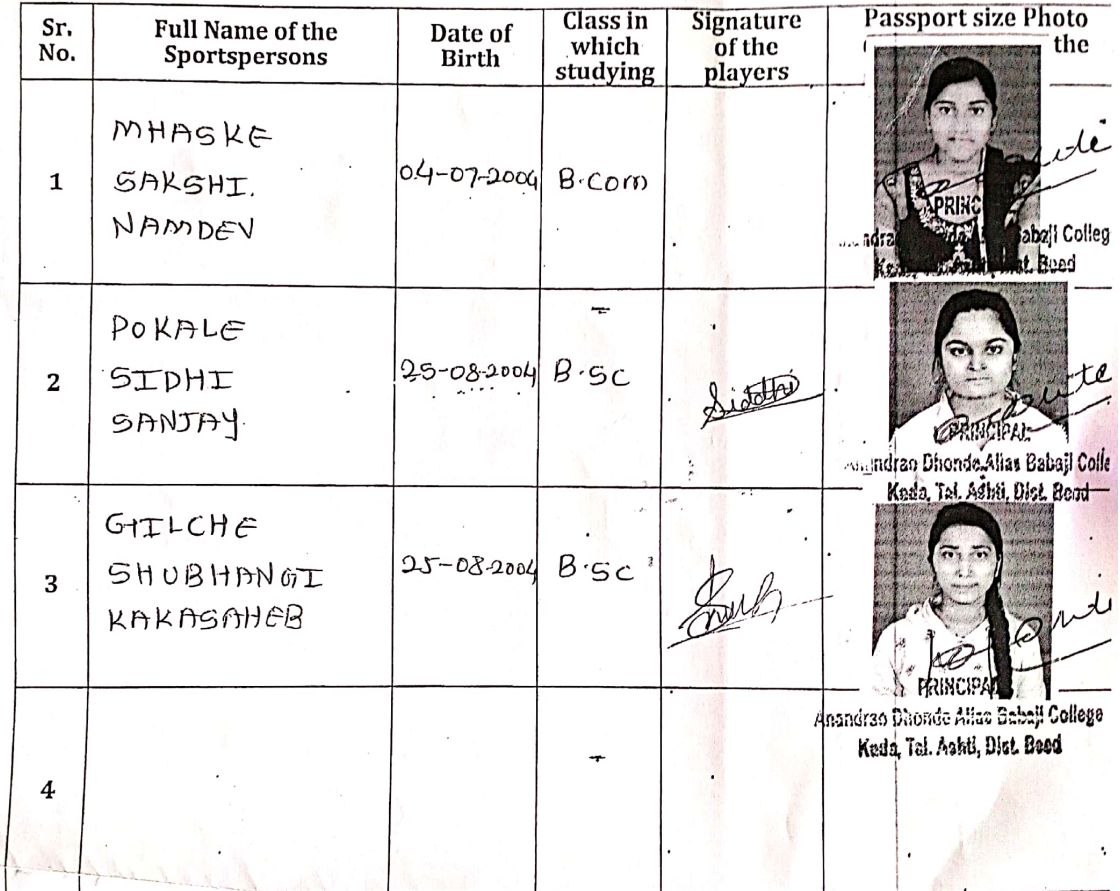 Sr. No.
Full Name of the Sportspersons
Date of Birth
Class in which studying
Signature of the players
Passport size Photo
the
1
MHASKE
SAKSHI.
NAMDEV
04-07-2004
B.Com
PRINC
Babaji Colleg
Dist. Beed
2
POKALE
SIDHI
SANJAY.
25-08-2004
B.SC
Siddhi
PRINCIPAL
Anandrao Dhonde Alias Babaji Colle
Kada, Tal. Ashti, Dist. Beed
3
GILCHE
SHUBHANGI
KAKASAHEB
25-08-2004
B.SC
PRINCIPAL
Anandrao Dhonde Alias Babaji College
Kada, Tal. Ashti, Dist. Beed
4